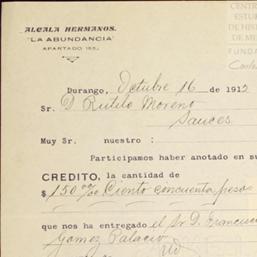 ALCALA HERMANOS.
"LA ABUNDANCIA"
APARTADO 153.
CENTR
ESTU
DE HIS
DE ME
FUNDA
Durango, Octubre 16 de 1912
Sr. D. Rutilo Moreno
Sauces.
Muy Sr. nuestro :
Participamos haber anotado en su
CREDITO, la cantidad de
$ 150 00/00 Ciento cincuenta pesos
que nos ha entregado el Sr D. Francisco
Gomez Palacio